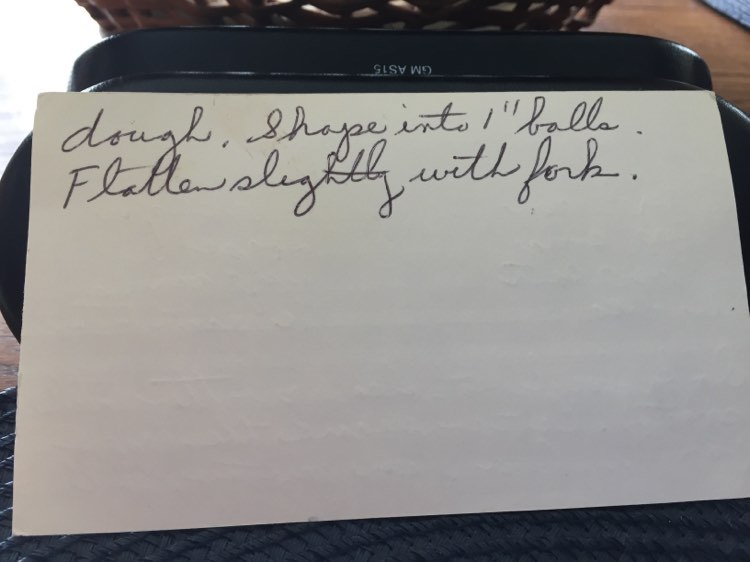 GM AS15
dough. Shape into 1" balls.
Flatten slightly with fork.